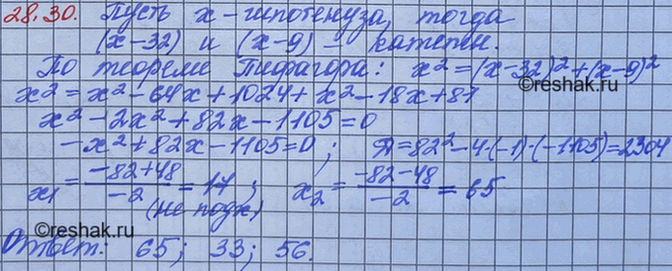 28.30. Пусть x-гипотенуза, тогда
(x-32) и (x-9) - катеты.
По теореме Пифагора: x²=(x-32)²+(x-9)²
x²=x²-64x+1024+x²-18x+81
x²-2x²+82x-1105=0
-x²+82x-1105=0; Д=82²-4·(-1)·(-1105)=2304
x₁=(-82+48)/-2=17; x₂=(-82-48)/-2=65
(не подх)
Ответ: 65; 33; 56.
reshak.ru